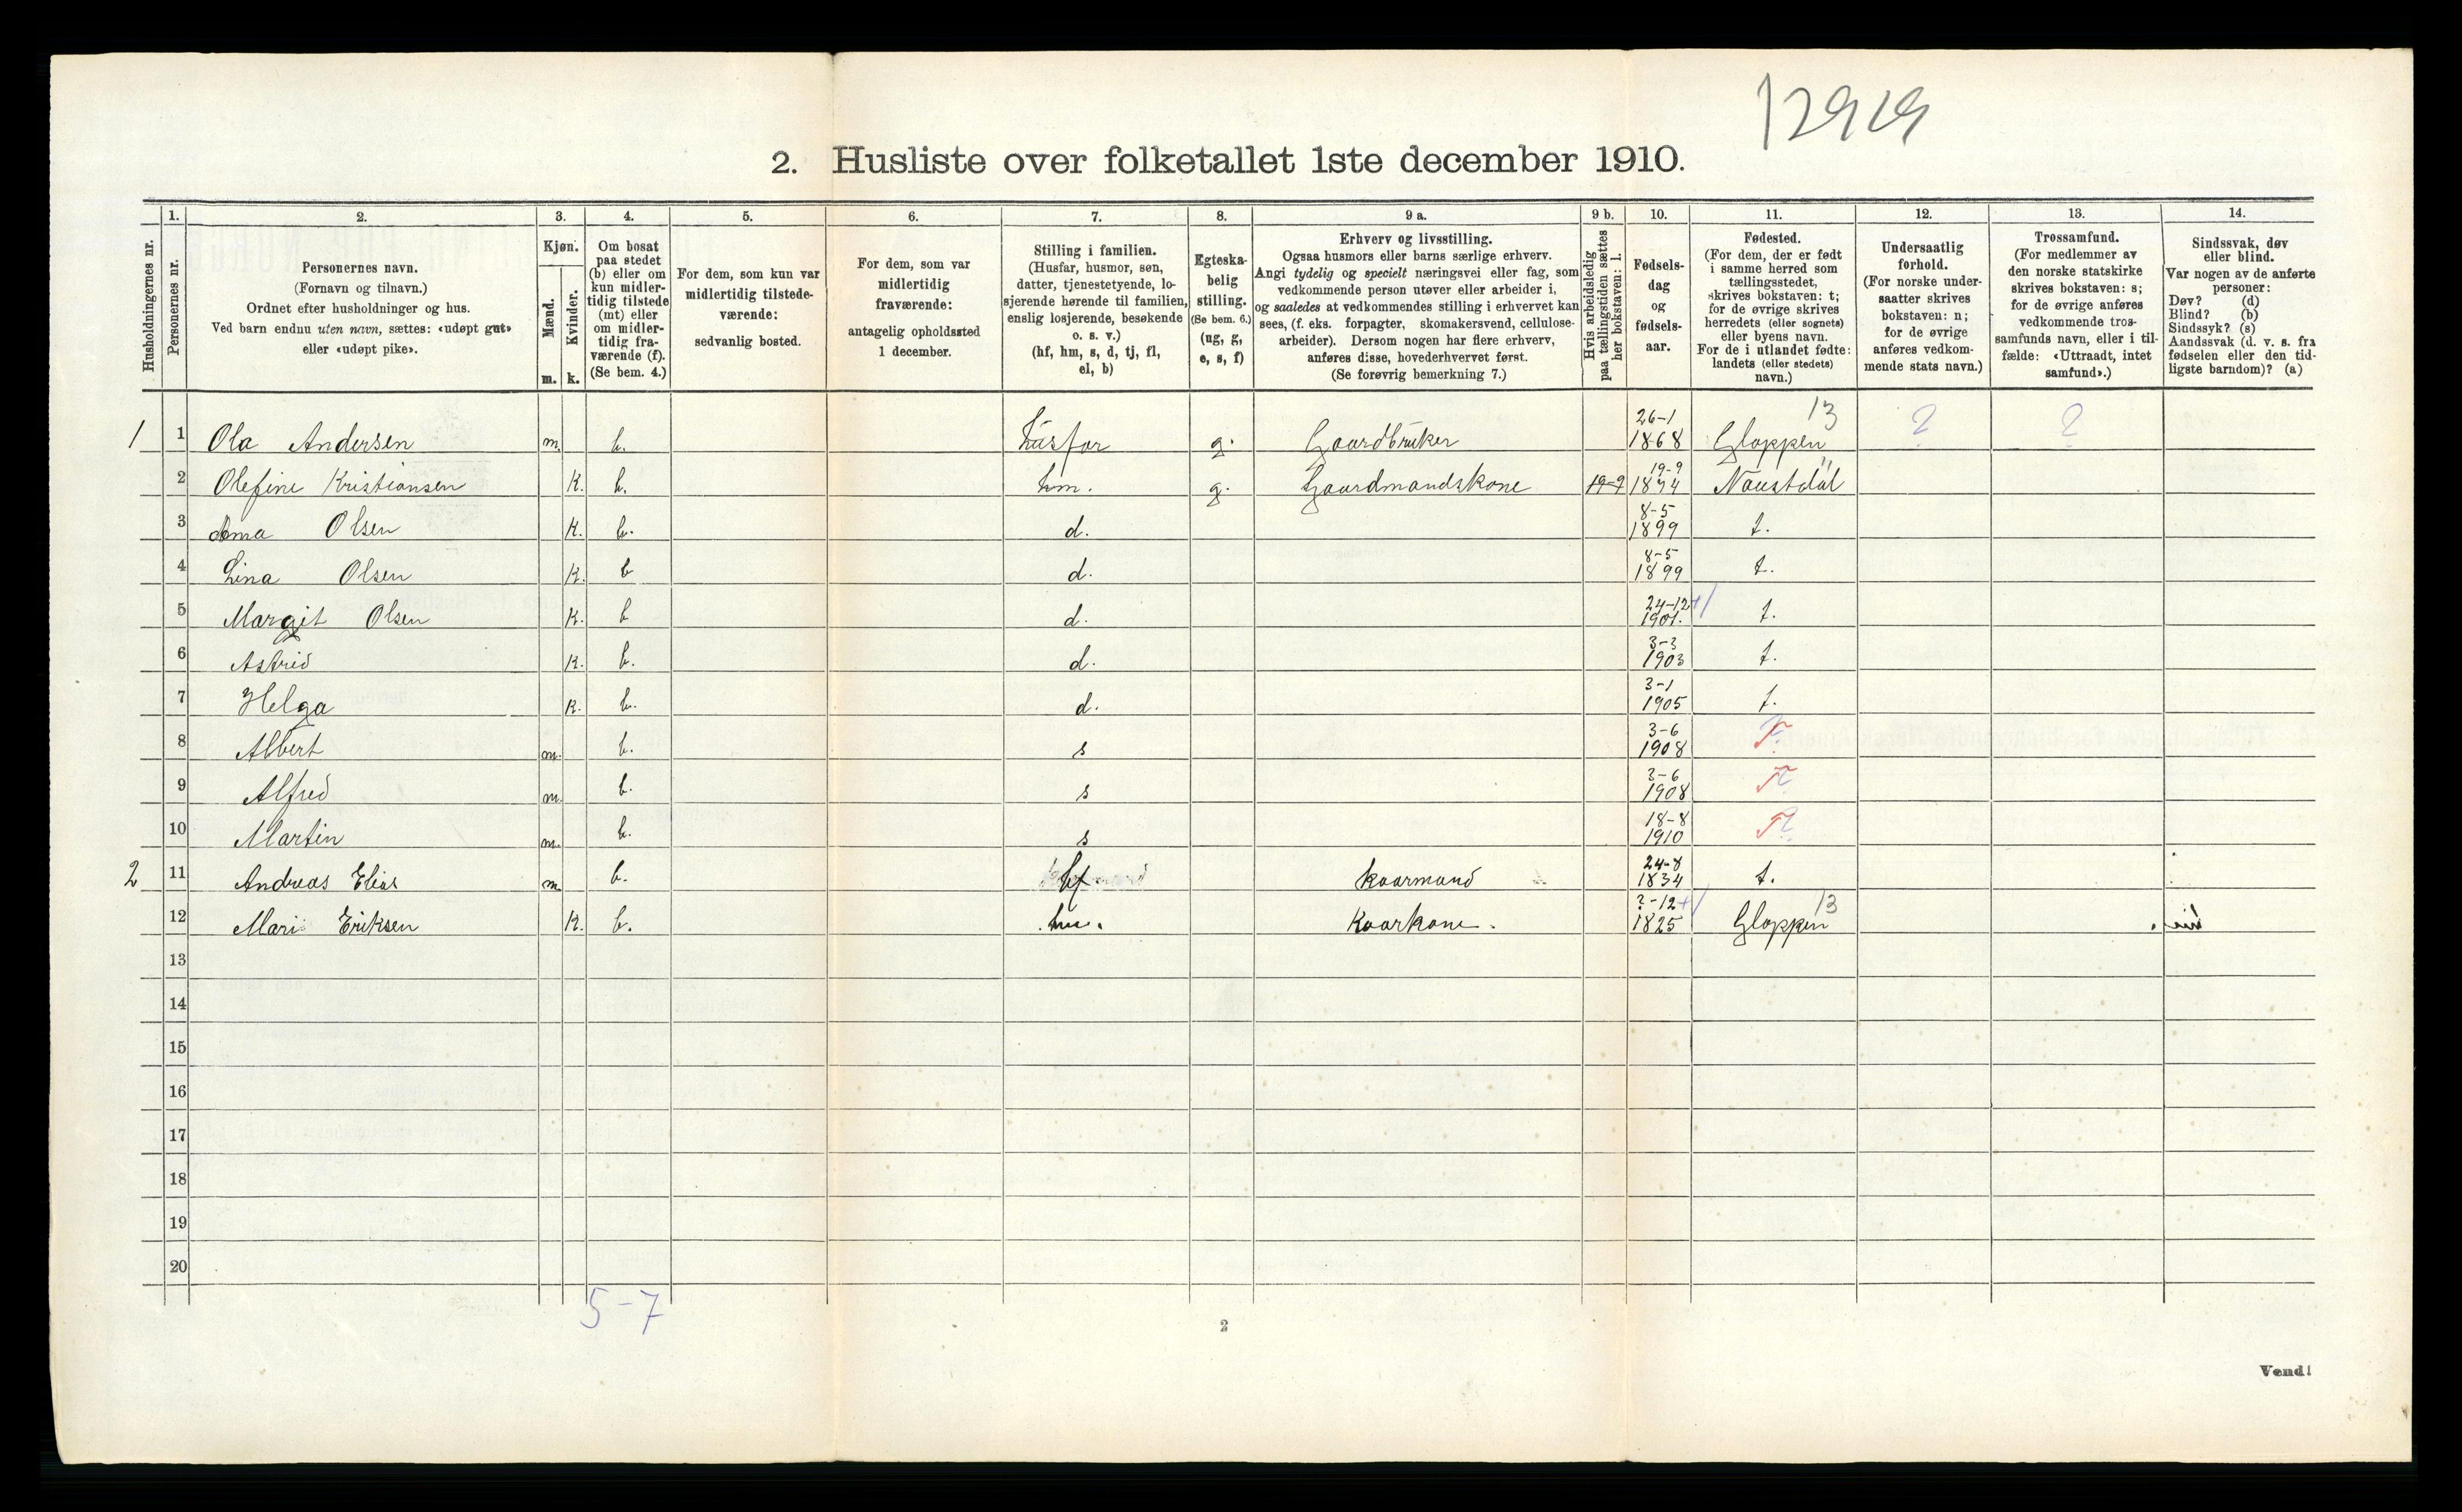 12919
2. Husliste over folketallet 1ste december 1910.
Husholdningernes nr.
1.
Personernes nr.
2.
Personernes navn.
(Fornavn og tilnavn.)
Ordnet efter husholdninger og hus.
Ved barn endnu uten navn, sættes: «udøpt gut»
eller «udøpt pike».
3.
Kjøn.
Mænd.
Kvinder.
m. k.
4.
Om bosat
paa stedet
(b) eller om
kun midler-
tidig tilstede
(mt) eller
om midler-
tidig fra-
værende (f).
(Se bem. 4.)
5.
For dem, som kun var
midlertidig tilstede-
værende:
sedvanlig bosted.
6.
For dem, som var
midlertidig
fraværende:
antagelig opholdssted
1 december.
7.
Stilling i familien.
(Husfar, husmor, søn,
datter, tjenestetyende, lo-
sjerende hørende til familien,
enslig losjerende, besøkende
o. s. v.)
(hf, hm, s, d, tj, fl,
el, b)
8.
Egteska-
belig
stilling.
(Se bem. 6.)
(ug, g,
e, s, f)
9 a.
Erhverv og livsstilling.
Ogsaa husmors eller barns særlige erhverv.
Angi tydelig og specielt næringsvei eller fag, som
vedkommende person utøver eller arbeider i,
og saaledes at vedkommendes stilling i erhvervet kan
sees, (f. eks. forpagter, skomakersvend, cellulose-
arbeider). Dersom nogen har flere erhverv,
anføres disse, hovederhvervet først.
(Se forøvrig bemerkning 7.)
9 b.
Hvis arbeidsledig
paa tællingstiden sættes
her bokstaven: l.
10.
Fødsels-
dag
og
fødsels-
aar.
11.
Fødested.
(For dem, der er født
i samme herred som
tællingsstedet,
skrives bokstaven: t;
for de øvrige skrives
herredets (eller sognets)
eller byens navn.
For de i utlandet fødte:
landets (eller stedets)
navn.)
12.
Undersaatlig
forhold.
(For norske under-
saatter skrives
bokstaven: n;
for de øvrige
anføres vedkom-
mende stats navn.)
13.
Trossamfund.
(For medlemmer av
den norske statskirke
skrives bokstaven: s;
for de øvrige anføres
vedkommende tros-
samfunds navn, eller i til-
fælde: «Uttraadt, intet
samfund».)
14.
Sindssvak, døv
eller blind.
Var nogen av de anførte
personer:
Døv? (d)
Blind? (b)
Sindssyk? (s)
Aandssvak (d. v. s. fra
fødselen eller den tid-
ligste barndom)? (a)
1 1 Ola Andersen m. b. husfar g. Gaardbruker 26-1 1868 Gloppen 13 ? ?
2 Olefine Kristiansen K. b. hm. g. Gaardmandskone 19-9 19-9 1874 Naustdal "
3 Anna Olsen K. b. d. 8-5 1899 t.
4 Lina Olsen K. b d. 8-5 1899 t.
5 Margit Olsen K. b d. 24-12 1901. t.
6 Astrid K. b. d. 3-3 1903 t.
7 Helga K. b. d. 3-1 1905 t.
8 Albert m. b. s 3-6 1908 T ?
9 Alfred m. b. s 3-6 1908 T ?
10 Martin m. b. s 18-8 1910 T ?
2 11 Andreas Elias m b. hf. kaarmand 24-8 1834 t.
12 Mari Eriksen K. b. hm. Kaarkone. ?-12 1825 Gloppen 13
13
14
15
16
17
18
19
20
5-7
2
Vend!